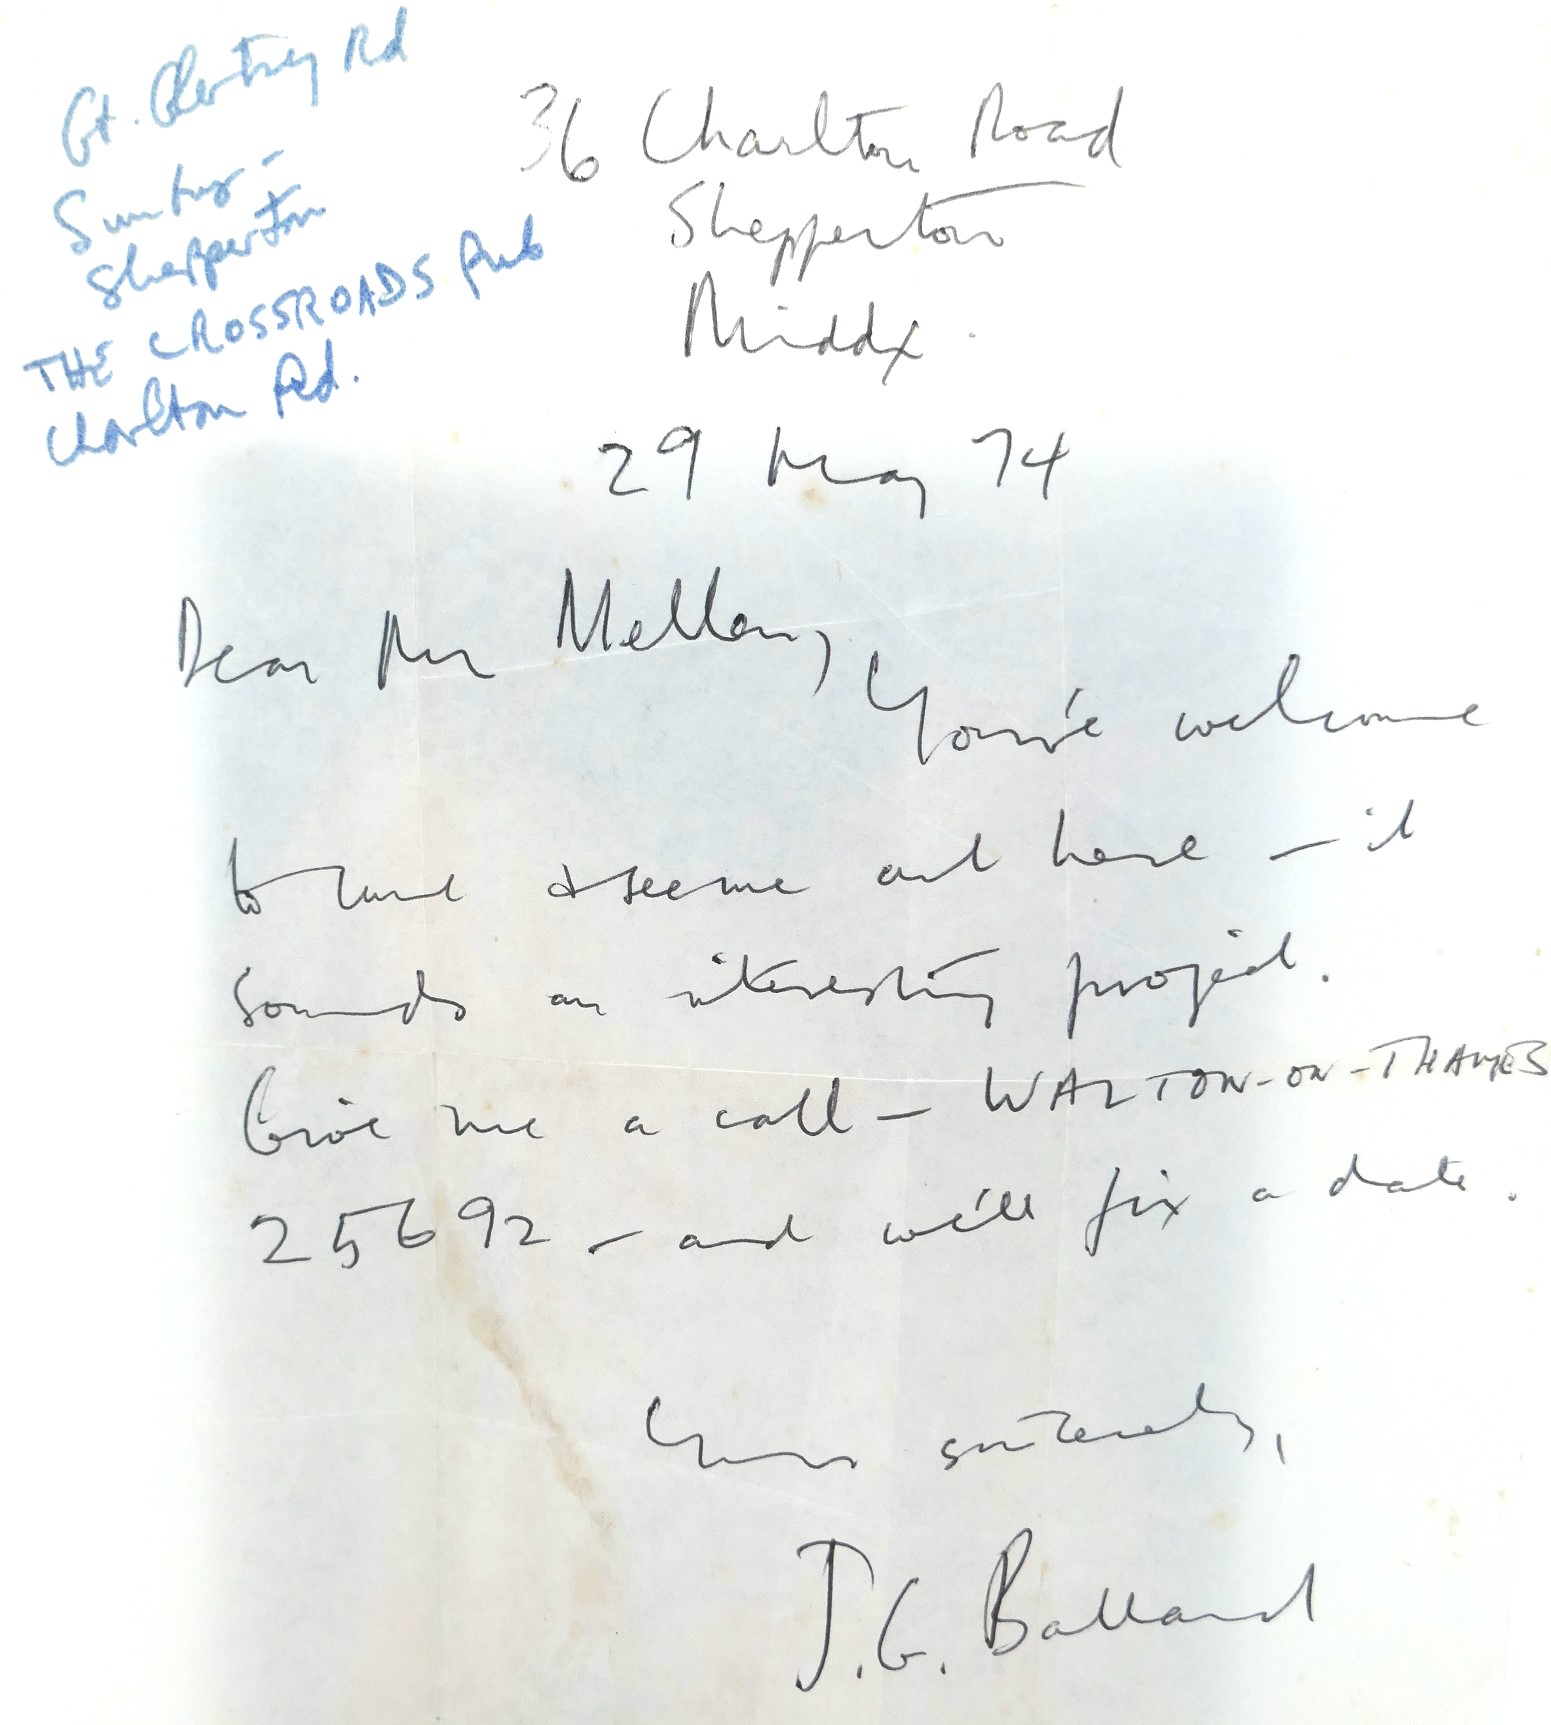 Gt. Chertsey Rd
Sunbury-
Shepperton
THE CROSSROADS Pub
Charlton Rd.
36 Charlton Road
Shepperton
Middx.
29 May 74
Dear Mr
You're welcome
to come & see me out here – it
sounds an interesting project.
Give me a call – WALTON-ON-THAMES
25692 – and we'll fix a date.
Yours sincerely,
J.G. Ballard